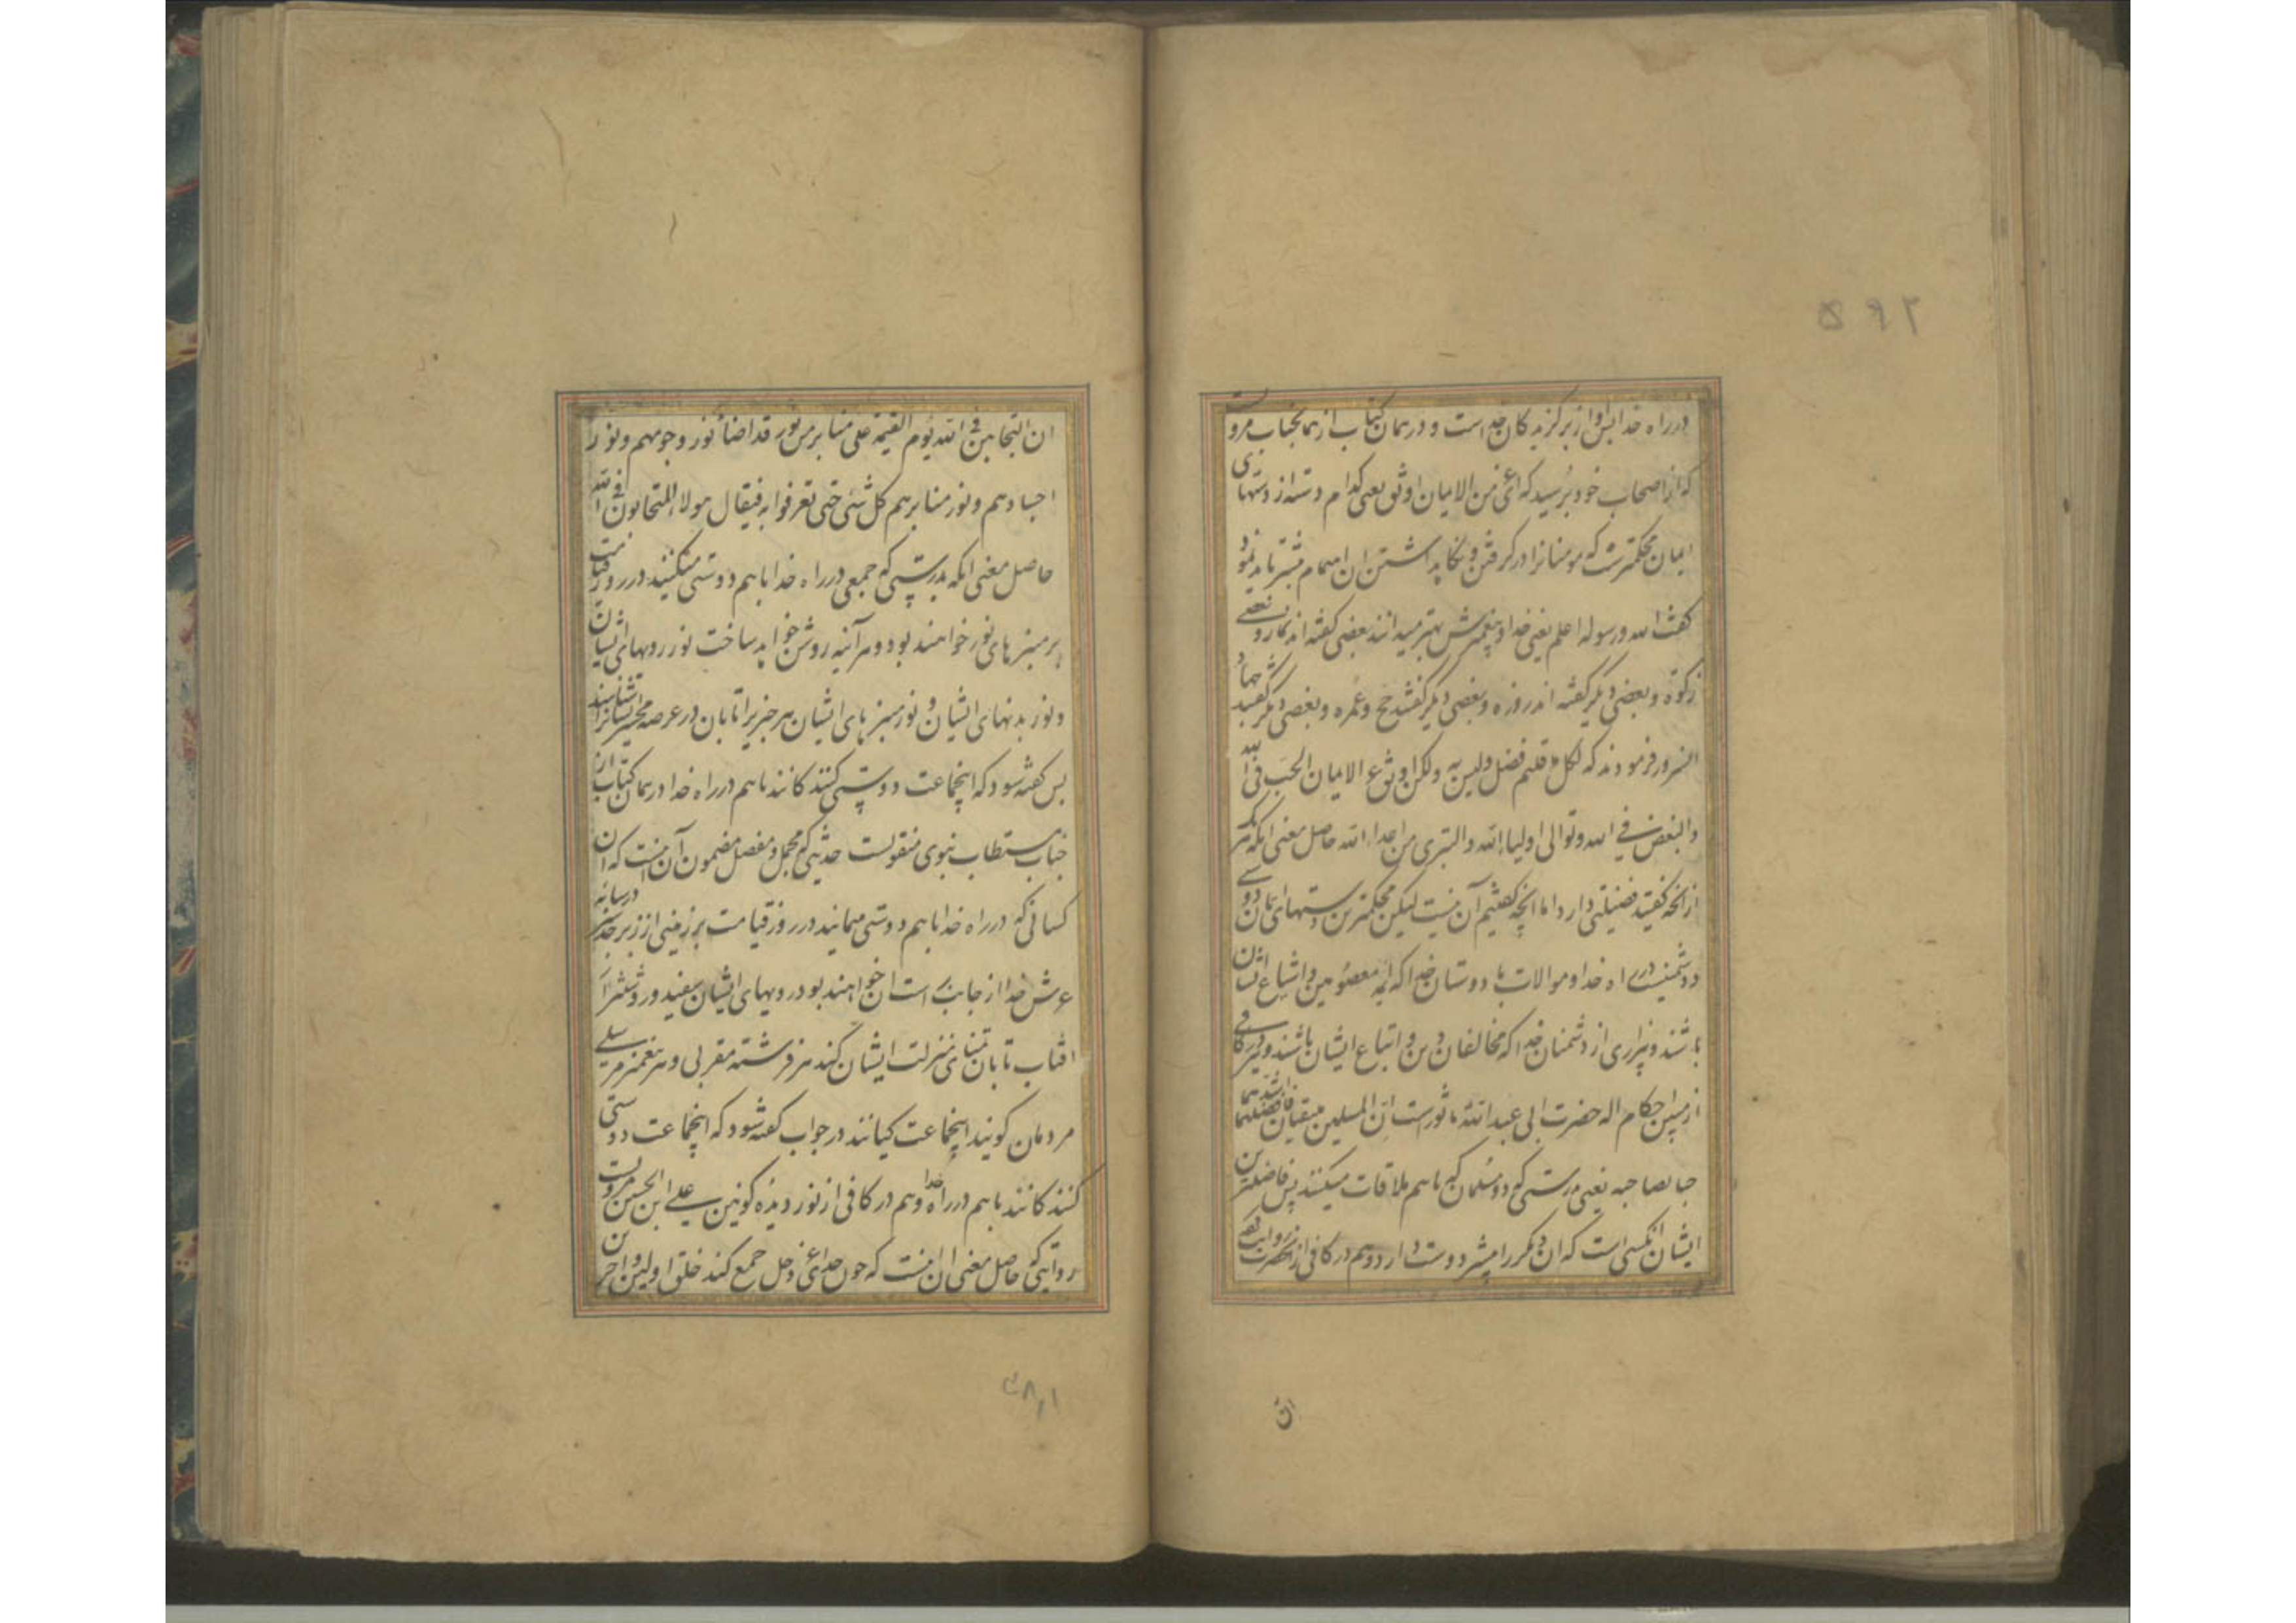 ۵۹۲
در راه خدا پس او از برگزیدگان خداست و در همان کتاب از همانجناب مرویست
که از اصحاب خود پرسید که ای عری من الایمان اوثق یعنی کدام دسته از دستهای
ایمان محکمترست که مومنانرا در گرفتن و نگاه داشتن آن اهتمام بیشتر باید نمود
گفتند الله و رسوله اعلم یعنی خدا و پیغمبرش بهتر میدانند بعضی گفته اند نماز و بعضی
زکوة و بعضی دیگر گفته اند روزه و بعضی دیگر گفتند حج و عمره و بعضی دیگر گفتند جهاد
انسرور فرمودند که لکل ما قلتم فضل و لیس به ولکن اوثق عری الایمان الحب فی الله
والبغض فی الله و توالی اولیاء الله والتبری من اعداء الله حاصل معنی انکه هر یک
از انچه گفتید فضیلتی دارد اما انچه گفتیم آن نیست لیکن محکمترین دستهای ایمان دوستی
و دشمنیست در راه خدا و موالات با دوستان خدا که ائمه معصومین و اشیاع ایشان
باشند و بیزاری از دشمنان خدا که مخالفان دین و اتباع ایشان باشند و نیز در کافی
از مبین احکام اله حضرت ابی عبدالله ماثورست ان المسلمین یلتقیان فافضلهما اشدهما
حبا لصاحبه یعنی بدرستی که دو مسلمان که باهم ملاقات میکنند پس فاضلترین
ایشان انکسی است که ان دیگر را بیشتر دوست دارد و هم در کافی از انحضرت روایت
ان
ان المتحابین فی الله یوم القیمة علی منابر من نور قد اضاء نور وجوههم و نور
اجسادهم و نور منابرهم کل شئ حتی تعرفوا به فیقال هولاء المتحابون فی الله
حاصل معنی انکه بدرستی که جمعی در راه خدا باهم دوستی میکنند در روز قیامت
بر منبرهای نور خواهند بود و هر آینه روشن خواهد ساخت نور رویهای ایشان
و نور بدنهای ایشان و نور منبرهای ایشان هر چیز را تا بان در عرصه محشر ایشانرا شناسند
پس گفته شود که اینجماعت دوستی کنندکانند باهم در راه خدا و در همان کتاب از
جناب مستطاب نبوی منقولست حدیثی که مجمل و مفصل مضمون آن اینست که ان
کسانی که در راه خدا باهم دوستی مینمایند در روز قیامت بر زمینی از زبرجد سبز در سایه
عرش خدا از جانب راست ان خواهند بود رویهای ایشان سفید و روشنتر از
افتاب تابان تمنای منزلت ایشان کند هر فرشته مقربی و هر پیغمبر مرسلی
مردمان گویند اینجماعت کیانند در جواب گفته شود که اینجماعت دوستی
کنندکانند باهم در راه خدا و هم در کافی از نور دیده کونین علی ابن الحسین مرویست
روایتی که حاصل معنی ان اینست که چون خدای عز و جل جمع کند خلق اولین و اخرین
۳۸۱